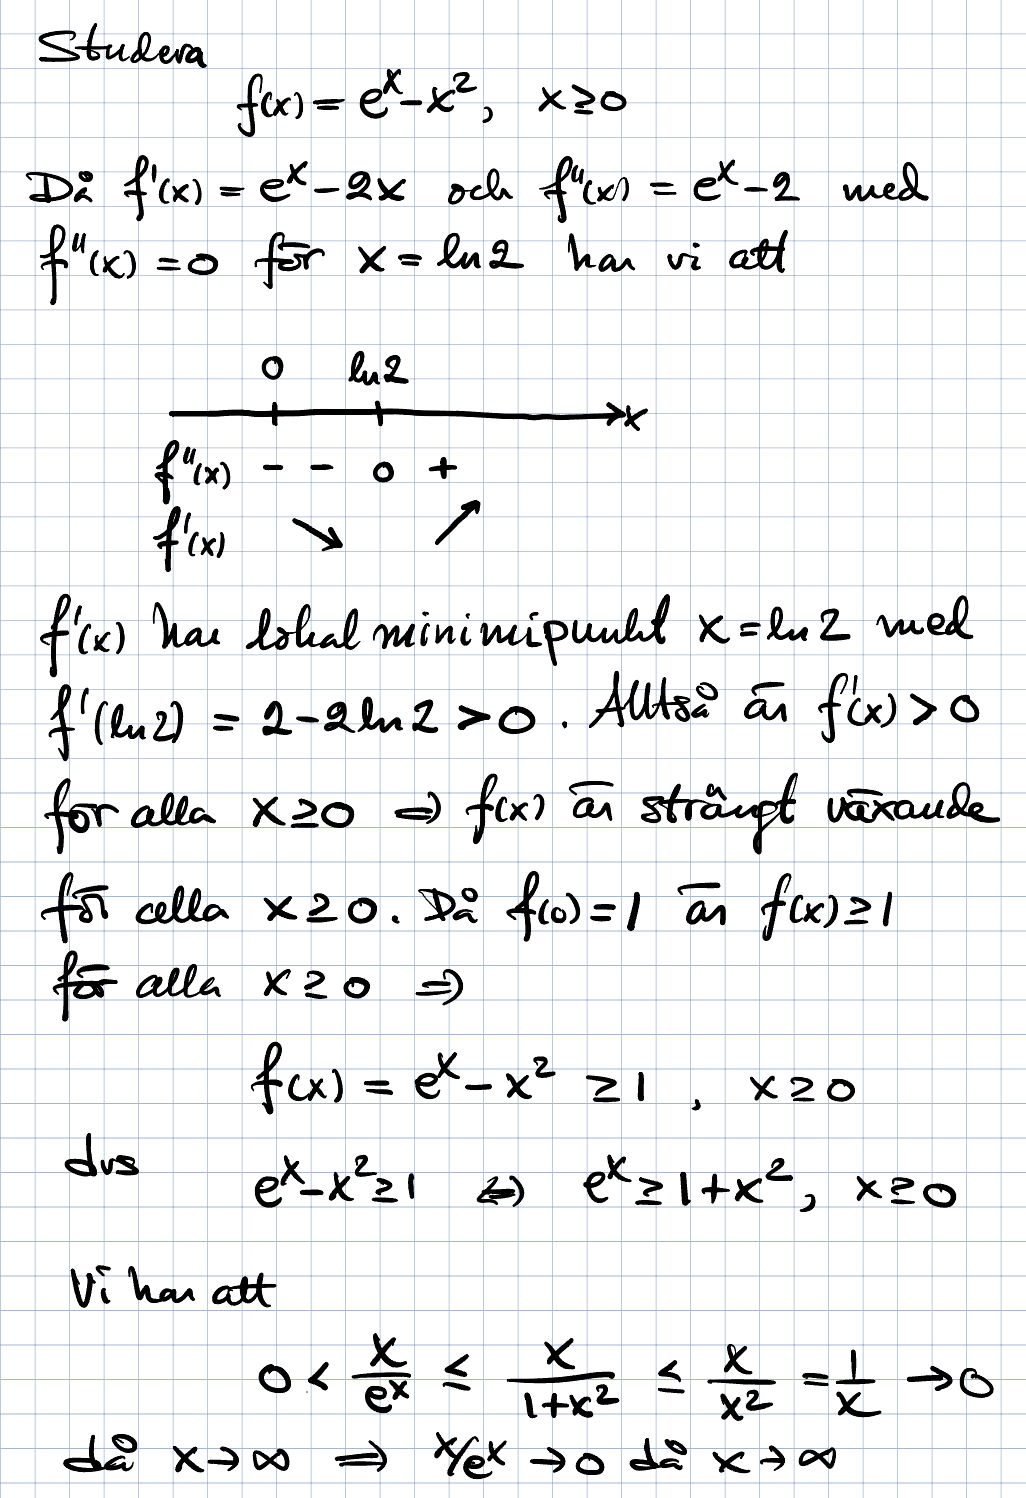 Studera
f(x) = e^x - x^2, x ≥ 0
Då f'(x) = e^x - 2x och f''(x) = e^x - 2 med
f''(x) = 0 för x = ln 2 har vi att
0 ln 2
x
f''(x) - - 0 +
f'(x) ↘ ↗
f'(x) har lokal minimipunkt x = ln 2 med
f'(ln 2) = 2 - 2 ln 2 > 0. Alltså är f'(x) > 0
för alla x ≥ 0 ⇒ f(x) är strängt växande
för alla x ≥ 0. Då f(0) = 1 är f(x) ≥ 1
för alla x ≥ 0 ⇒
f(x) = e^x - x^2 ≥ 1, x ≥ 0
dvs
e^x - x^2 ≥ 1 ⇔ e^x ≥ 1 + x^2, x ≥ 0
Vi har att
0 < x/e^x ≤ x/(1+x^2) ≤ x/x^2 = 1/x → 0
då x → ∞ ⇒ x/e^x → 0 då x → ∞